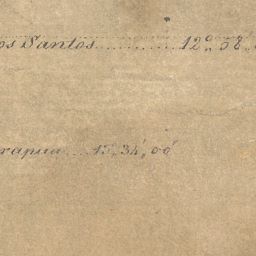 os Santos............12º, 58',
rapua....15, 34', 00"